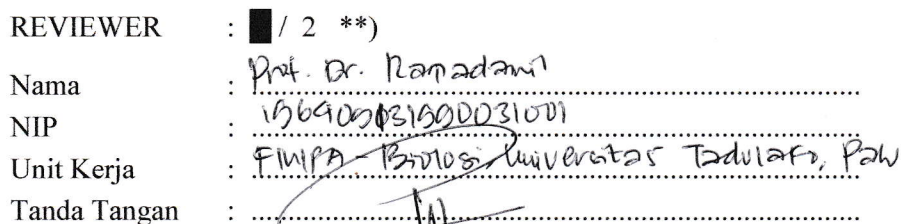 REVIEWER : / 2 **)
Nama : Prof. Dr. Ramadanil
NIP :
Unit Kerja : FMIPA - Biologi Universitas Tadulako, Palu
Tanda Tangan :